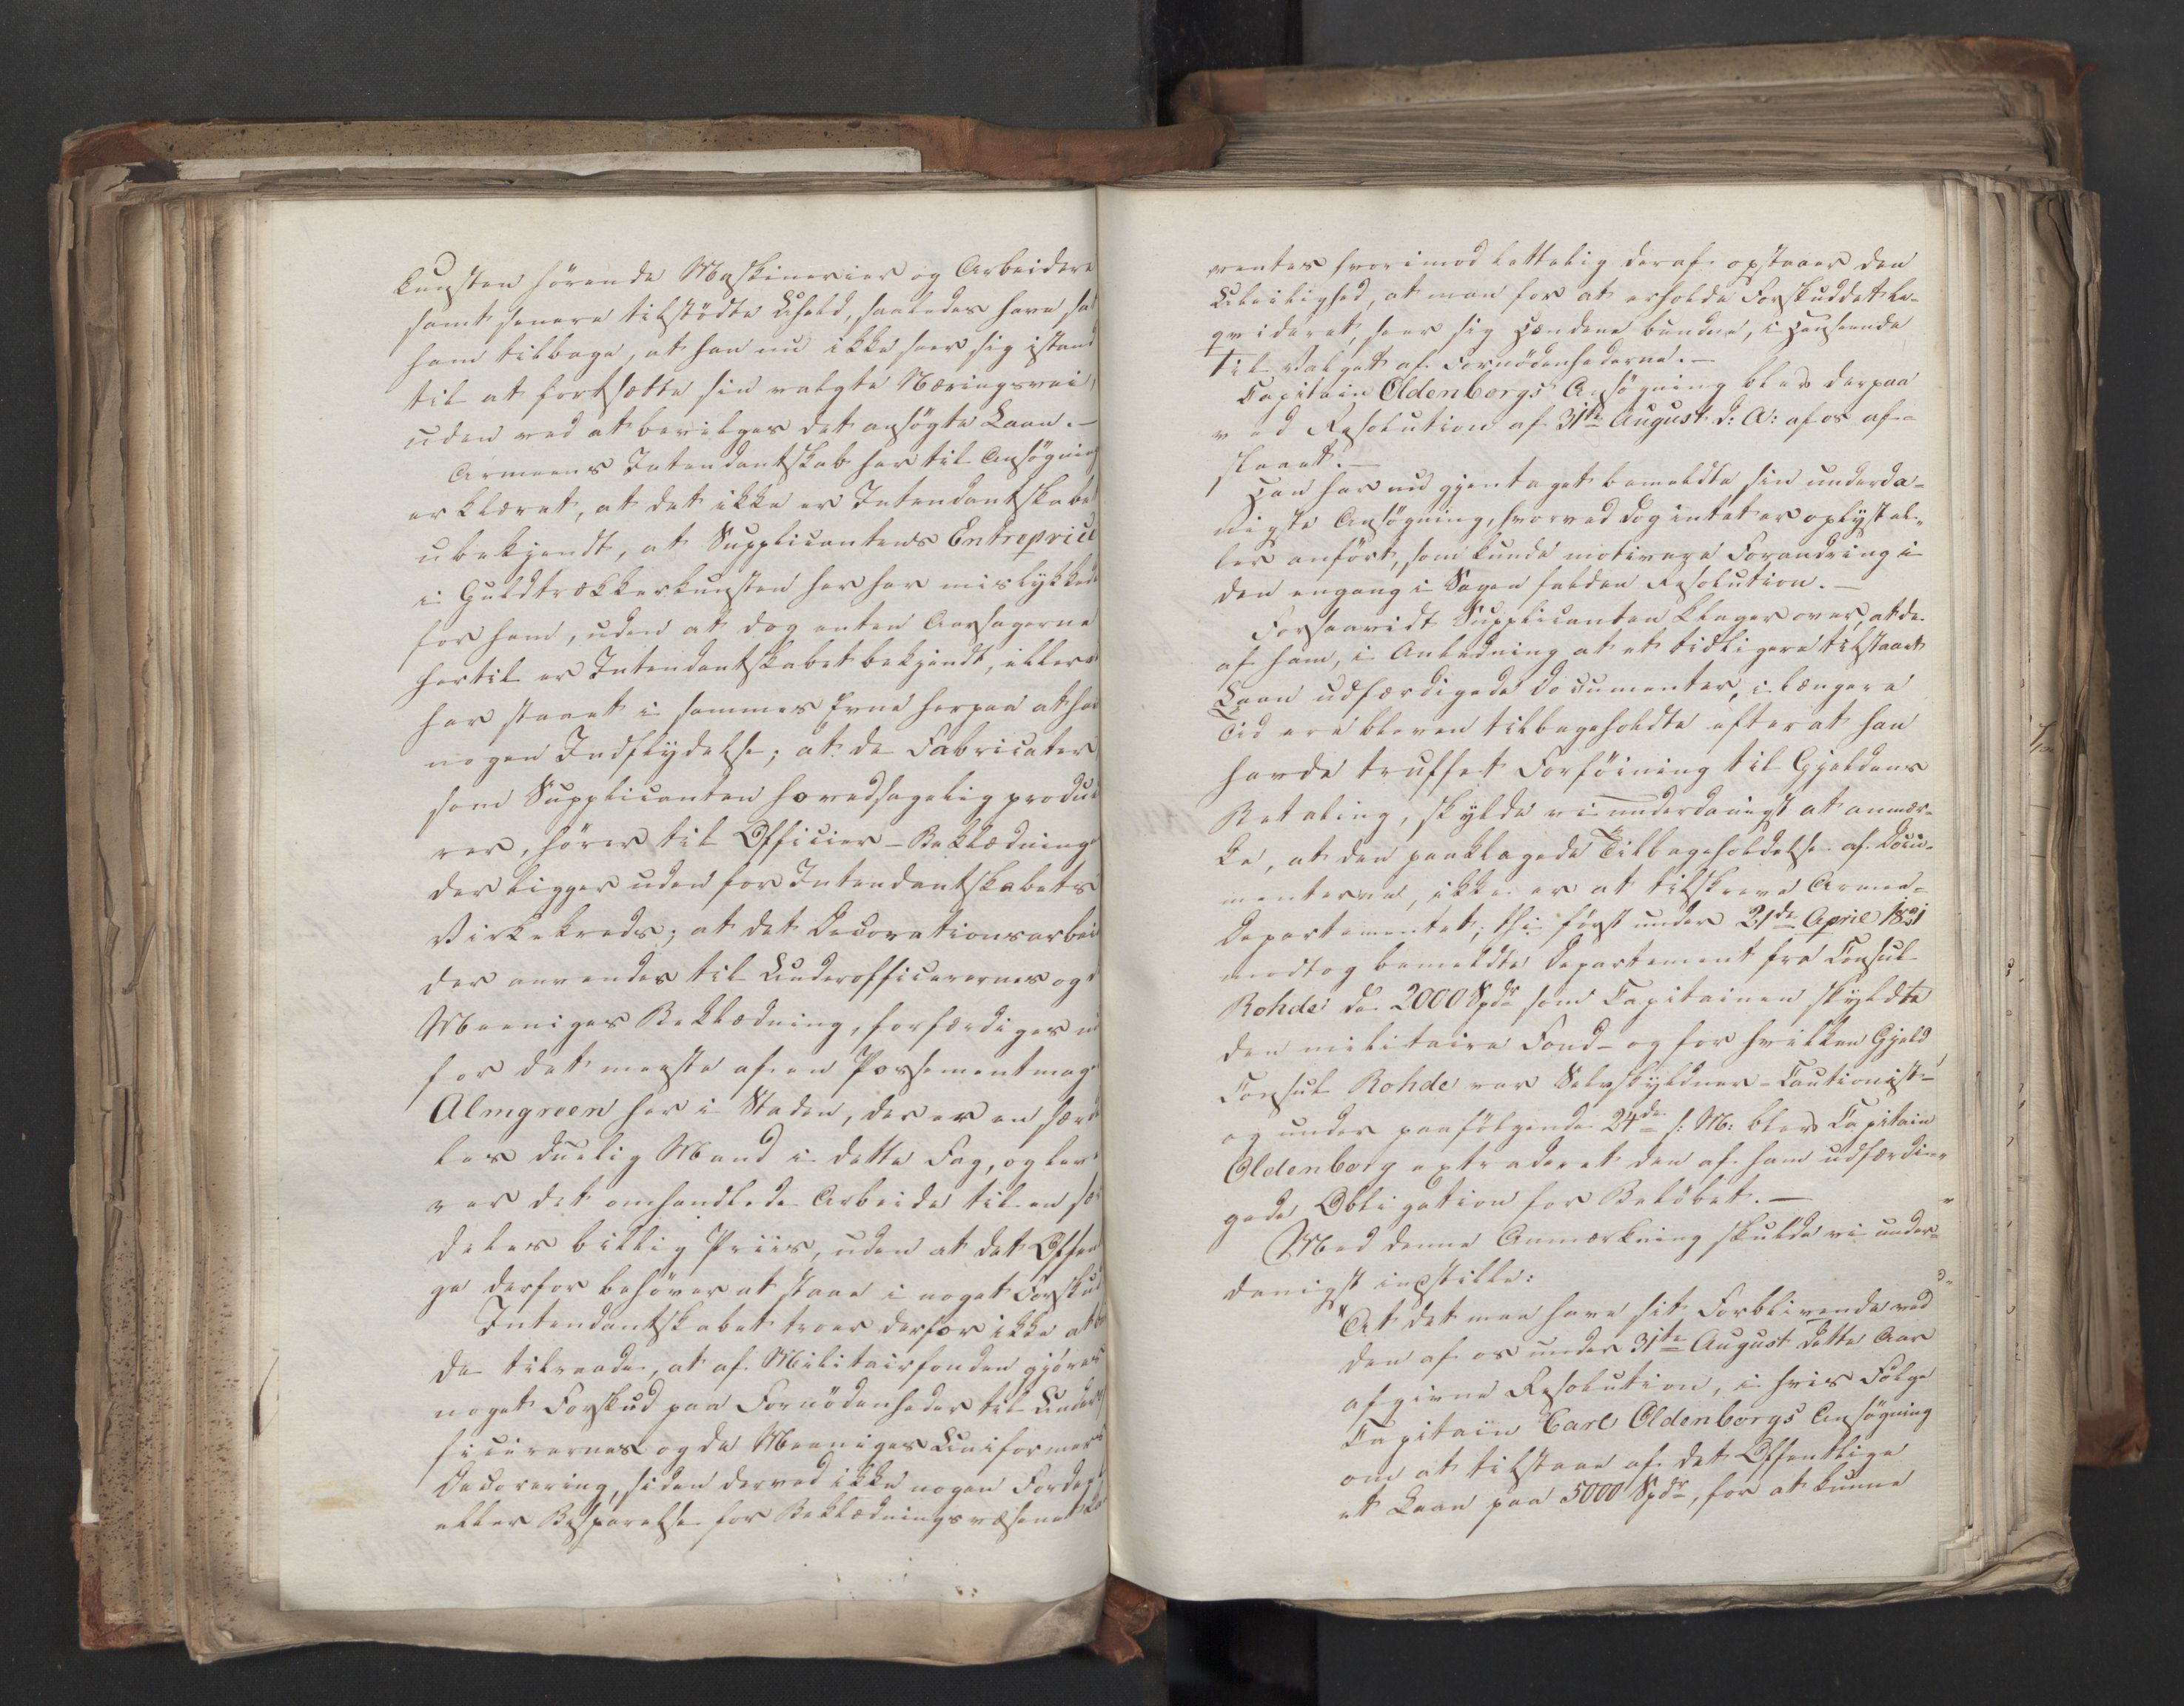 kunsten hørende Maskinerier og Arbeidere
samt senere tilstødte Uheld, saaledes have sat
ham tilbage, at han nu ikke seer sig istand
til at fortsætte sin valgte Næringsvei,
uden ved at bevilges det ansøgte Laan.–
Armeens Intendantskab har til Ansøgning
erklæret, at det ikke er Intendantskabet
ubekjendt, at Supplicantens Entreprice
i Guldtrækkerkunsten her har mislykkedes
for ham, uden at dog enten Aarsagerne
hertil er Intendantskabet bekjendt, eller
har staaet i sammes Evne herpaa at have
nogen Indflydelse; at de Fabricater,
som Supplicanten hovedsagelig produce
rer, hører til Officier-Beklædning
der ligger uden for Intendantskabets
Virkekreds; at det Decorationsarbeide
der anvendes til Underofficerernes og
Meeniges Beklædning, forfærdiges nu
for det meeste af en Possementmager
Almgreen her i Staden, der er en særde
les duelig Mand i dette Fag, og leve
rer det omhandlede Arbeide til en sær
deles billig Priis, uden at det Offentli
ge derfor behøver at staae i noget Forskud
Intendantskabet troer derfor ikke at
de tilraade, at af Militairfonden gjøres
noget Forskud paa Fornødenheder til Underof
ficerernes og de Meeniges Uniformers
Decorering, siden derved ikke nogen Fordeel
eller Besparelse for Beklædningsvæsenet kan
ventes hvorimod lettelig deraf opstaaer den
Ubeilighed, at man for at erholde Forskuddet li-
qvideret, seer sig Hændene bundne, i Henseende
til Valget af Fornødenhederne.–
Capitain Oldenborgs Ansøgning blev derpaa
ved Resolution af 31te August d: A: af os af-
slaaet.–
Han har nu gjentaget bemeldte sin underda-
nigste Ansøgning, hvorved dog intet er oplyst el-
ler anført, som kunde motivere Forandring i
den engang i Sagen faldne Resolution.–
Forsaavidt Supplicanten klager over, at de
af ham, i Anledning at et tidligere tilstaaet
Laan udfærdigede Documenter, i længere
Tid ere bleven tilbageholdte efter at han
havde truffet Forføining til Gjeldens
Betaling, skylde vi underdanigst at anmær-
ke, at den paaklagede Tilbageholdelse af Docu-
menterne, ikke er at tilskrive Armee-
Departementet, thi først under 21de April 1821
modtog bemeldte Departement fra Consul
Rohde de 2000 Spdr som Capitainen skyldte
den militaire Fond – og for hvilken Gjeld
Consul Rohde var Selvskyldner-Cautionist –
og under paafølgende 24de s: M: blev Capitain
Oldenborg extraderet den af ham udfærdi-
gede Obligation for Beløbet.–
Med denne Anmærkning skulde vi under-
danigst indstille:
"At det maa have sit Forblivende ved
den af os under 31te August dette Aar
afgivne Resolution, i hvis Følge
Capitain Carl Oldenborgs Ansøgning
om at tilstaae af det Offentlige
et Laan paa 5000 Spdr, for at kunne